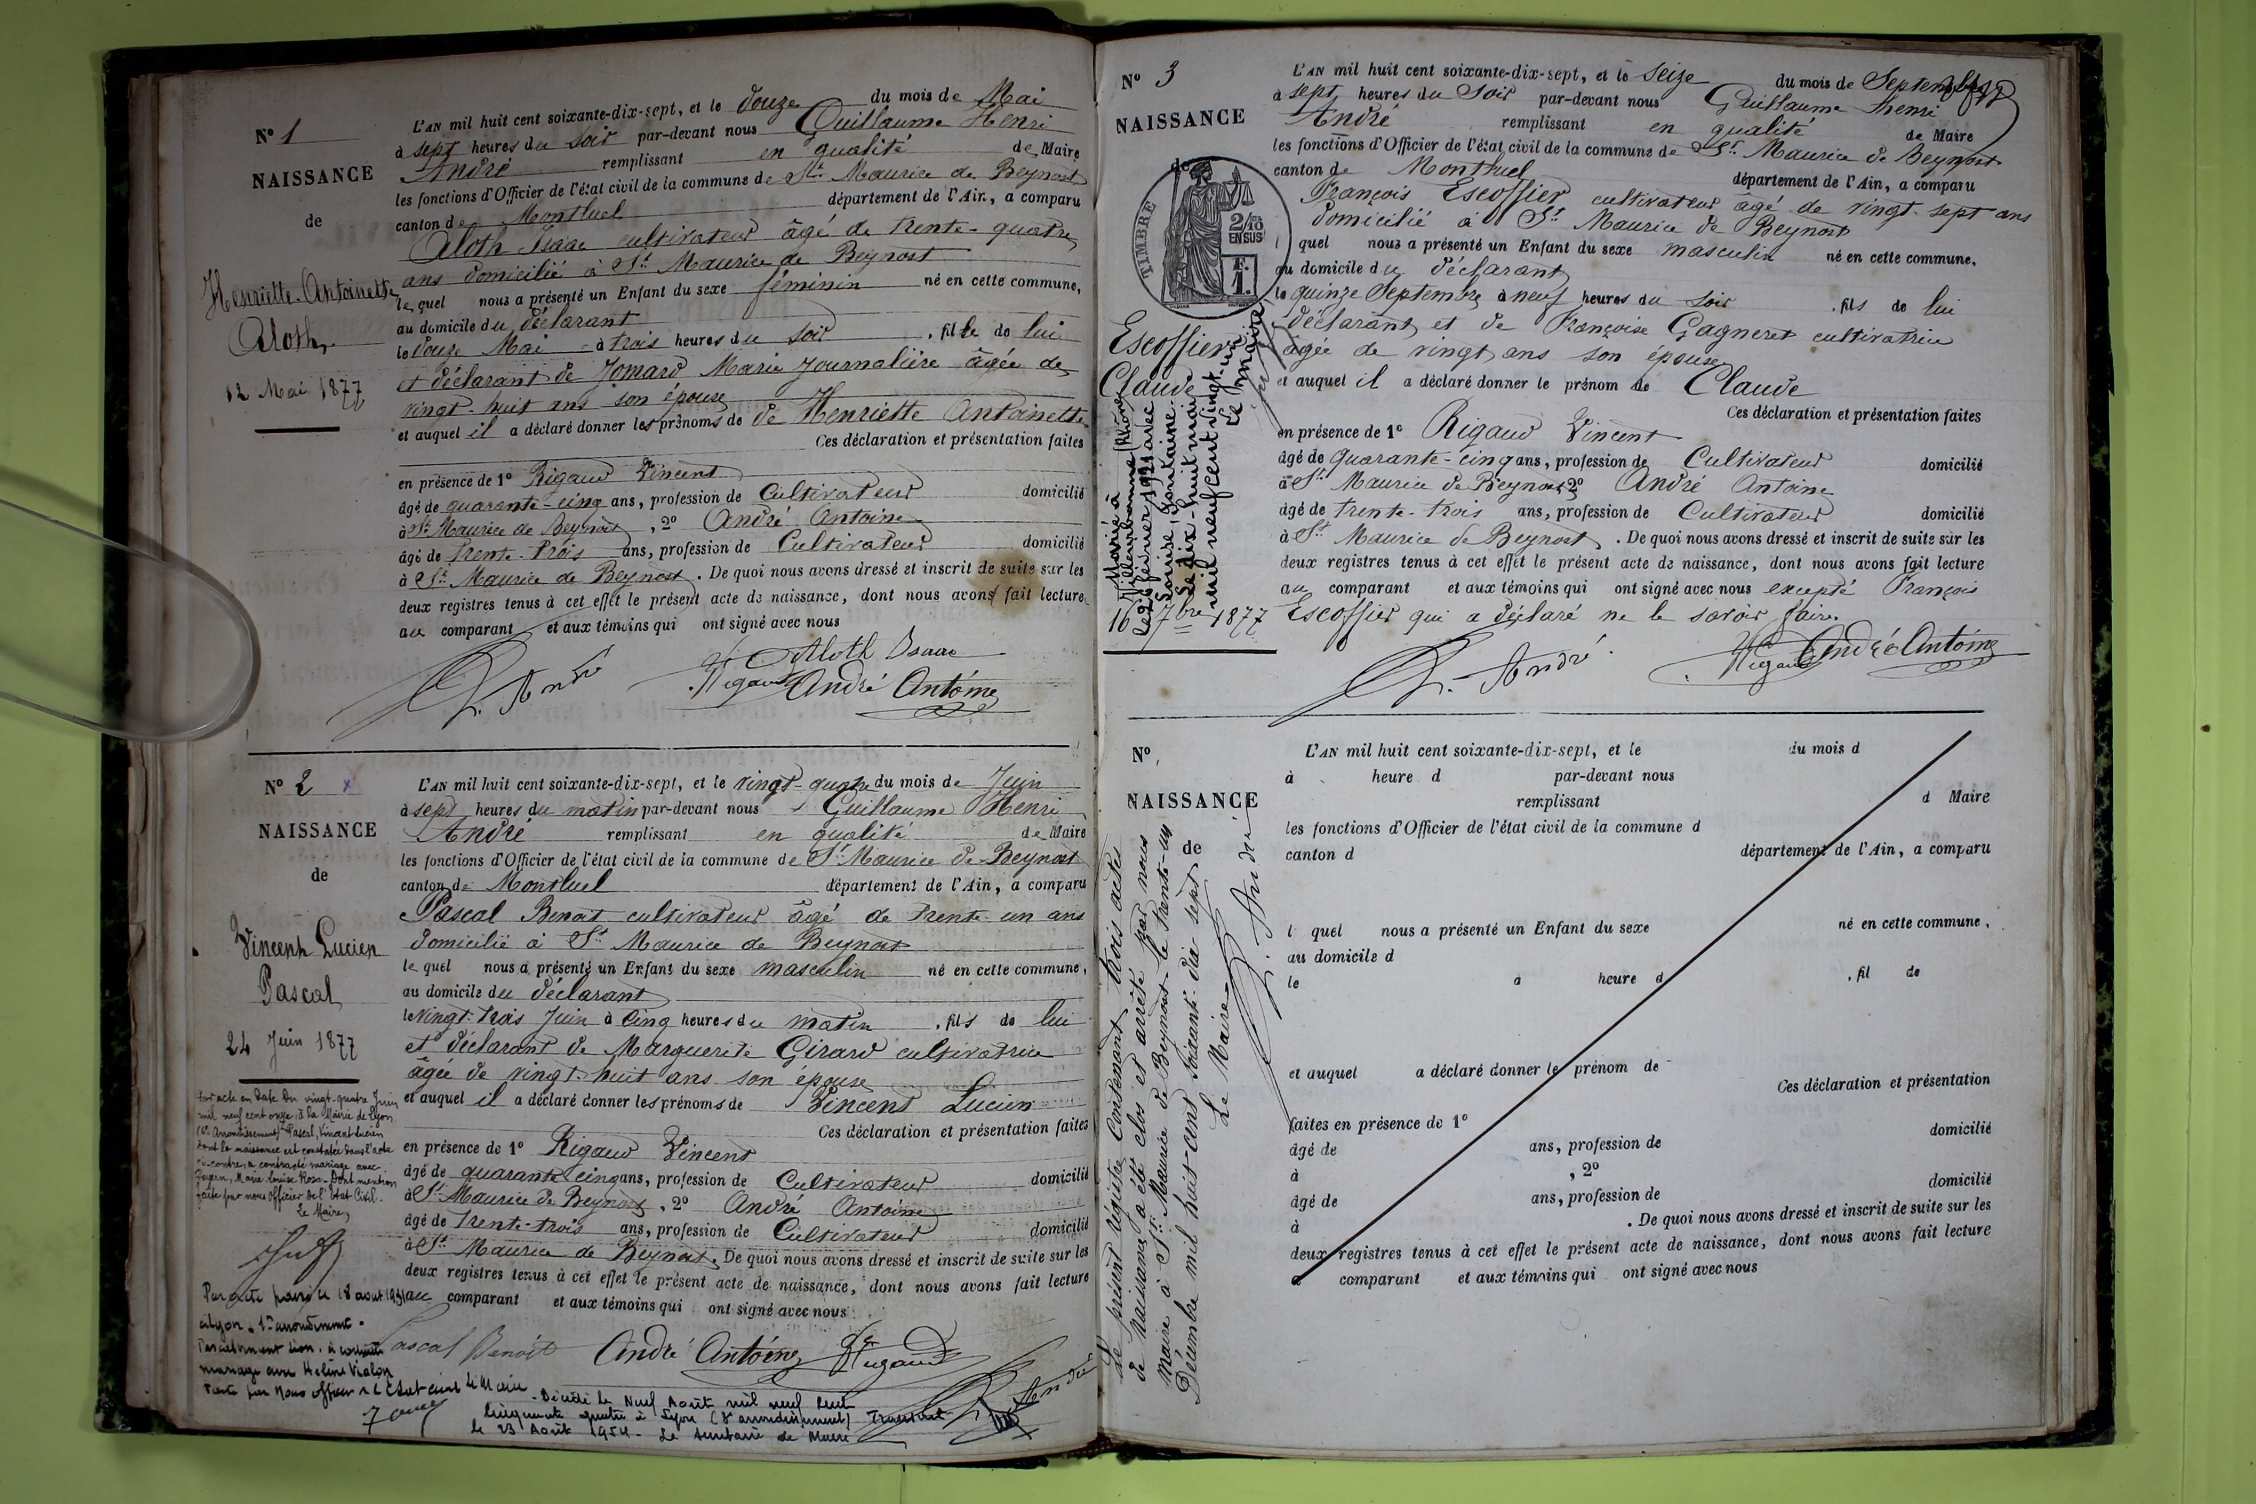 N° 1
NAISSANCE
de
Henriette Antoinette
Aloth
12 Mai 1877
L'AN mil huit cent soixante-dix-sept, et le douze du mois de Mai
à sept heures du soir par-devant nous Guillaume Henri
André remplissant en qualité de Maire
les fonctions d'Officier de l'état civil de la commune de St. Maurice de Beynost
canton de Montluel département de l'Ain, a comparu
Aloth Isaac cultivateur âgé de trente-quatre
ans domicilié à St. Maurice de Beynost
le quel nous a présenté un Enfant du sexe féminin né en cette commune,
au domicile du déclarant
le douze Mai à trois heures du soir, fille de lui
et déclarant de Jomard Marie journalière âgée de
vingt-huit ans son épouse
et auquel il a déclaré donner les prénoms de de Henriette Antoinette
Ces déclaration et présentation faites
en présence de 1° Rigaud Vincent
âgé de quarante-cinq ans, profession de Cultivateur domicilié
à St. Maurice de Beynost, 2° André Antoine
âgé de trente-trois ans, profession de Cultivateur domicilié
à St. Maurice de Beynost. De quoi nous avons dressé et inscrit de suite sur les
deux registres tenus à cet effet le présent acte de naissance, dont nous avons fait lecture
au comparant et aux témoins qui ont signé avec nous
Aloth Isaac
André Rigaud André Antoine
N° 2 x
NAISSANCE
de
Vincent Lucien
Pascal
24 Juin 1877
Par acte en Date du vingt-quatre Juin
mil neuf cent onze, à la Mairie de Lyon
Arrondissement) Pascal, Vincent Lucien
dont la naissance est constatée dans l'acte
ci-contre, a contracté mariage avec
Marie Louise Rosa. Dont mention
faite par nous Officier de l'Etat Civil.
Le Maire,
Par acte passé le 18 août 1931
à Lyon 1er arrondissement
mariage avec Hélène Vialon
Par Nous officier de l'Etat civil Le Maire
L'AN mil huit cent soixante-dix-sept, et le vingt-quatre du mois de Juin
à sept heures du matin par-devant nous Guillaume Henri
André remplissant en qualité de Maire
les fonctions d'Officier de l'état civil de la commune de St. Maurice de Beynost
canton de Montluel département de l'Ain, a comparu
Pascal Benoit cultivateur âgé de trente-un ans
domicilié à St. Maurice de Beynost
le quel nous a présenté un Enfant du sexe masculin né en cette commune,
au domicile du déclarant
le vingt-trois Juin à cinq heures du matin, fils de lui
et déclarant de Marguerite Girard cultivatrice
âgée de vingt-huit ans son épouse
et auquel il a déclaré donner les prénoms de Vincent Lucien
Ces déclaration et présentation faites
en présence de 1° Rigaud Vincent
âgé de quarante cinq ans, profession de Cultivateur domicilié
à St. Maurice de Beynost, 2° André Antoine
âgé de trente-trois ans, profession de Cultivateur domicilié
à St. Maurice de Beynost. De quoi nous avons dressé et inscrit de suite sur les
deux registres tenus à cet effet le présent acte de naissance, dont nous avons fait lecture
au comparant et aux témoins qui ont signé avec nous
Pascal Benoit André Antoine Rigaud
André
Décédé le Neuf Août mil neuf cent
cinquante quatre à Lyon (8e arrondissement) Transcrit
le 23 Août 1954. Le secrétaire de Mairie
N° 3
NAISSANCE
de
TIMBRE
2/10
EN SUS
F.
1.
Escoffier
Claude
Marié à
Villeurbanne (Rhône)
le 26 février 1921 avec
Louise, Fontaine.
Le dix-huit mai
mil neuf cent vingt-un
Le Maire
16 7bre 1877
L'AN mil huit cent soixante-dix-sept, et le seize du mois de Septembre
à sept heures du soir par-devant nous Guillaume Henri
André remplissant en qualité de Maire
les fonctions d'Officier de l'état civil de la commune de St. Maurice de Beynost
canton de Montluel département de l'Ain, a comparu
François Escoffier cultivateur âgé de vingt-sept ans
domicilié à St. Maurice de Beynost
l quel nous a présenté un Enfant du sexe masculin né en cette commune,
au domicile du déclarant
le quinze Septembre à neuf heures du soir, fils de lui
déclarant et de Françoise Gagneret cultivatrice
âgée de vingt ans son épouse
et auquel il a déclaré donner le prénom de Claude
Ces déclaration et présentation faites
en présence de 1° Rigaud Vincent
âgé de quarante-cinq ans, profession de Cultivateur domicilié
à St. Maurice de Beynost, 2° André Antoine
âgé de trente-trois ans, profession de Cultivateur domicilié
à St. Maurice de Beynost. De quoi nous avons dressé et inscrit de suite sur les
deux registres tenus à cet effet le présent acte de naissance, dont nous avons fait lecture
au comparant et aux témoins qui ont signé avec nous excepté François
Escoffier qui a déclaré ne le savoir faire.
André Rigaud André Antoine
N°
NAISSANCE
de
Le présent régistre contenant trois actes
de naissance, a été clos et arrêté par nous
maire à St. Maurice de Beynost le trente-un
Décembre mil huit-cent soixante-dix-sept
Le Maire
André
L'AN mil huit cent soixante-dix-sept, et le du mois d
à heure d par-devant nous
remplissant d Maire
les fonctions d'Officier de l'état civil de la commune d
canton d département de l'Ain, a comparu
l quel nous a présenté un Enfant du sexe né en cette commune,
au domicile d
le à heure d , fil de
et auquel a déclaré donner le prénom de
Ces déclaration et présentation
faites en présence de 1°
âgé de ans, profession de domicilié
à , 2°
âgé de ans, profession de domicilié
à . De quoi nous avons dressé et inscrit de suite sur les
deux registres tenus à cet effet le présent acte de naissance, dont nous avons fait lecture
a comparant et aux témoins qui ont signé avec nous